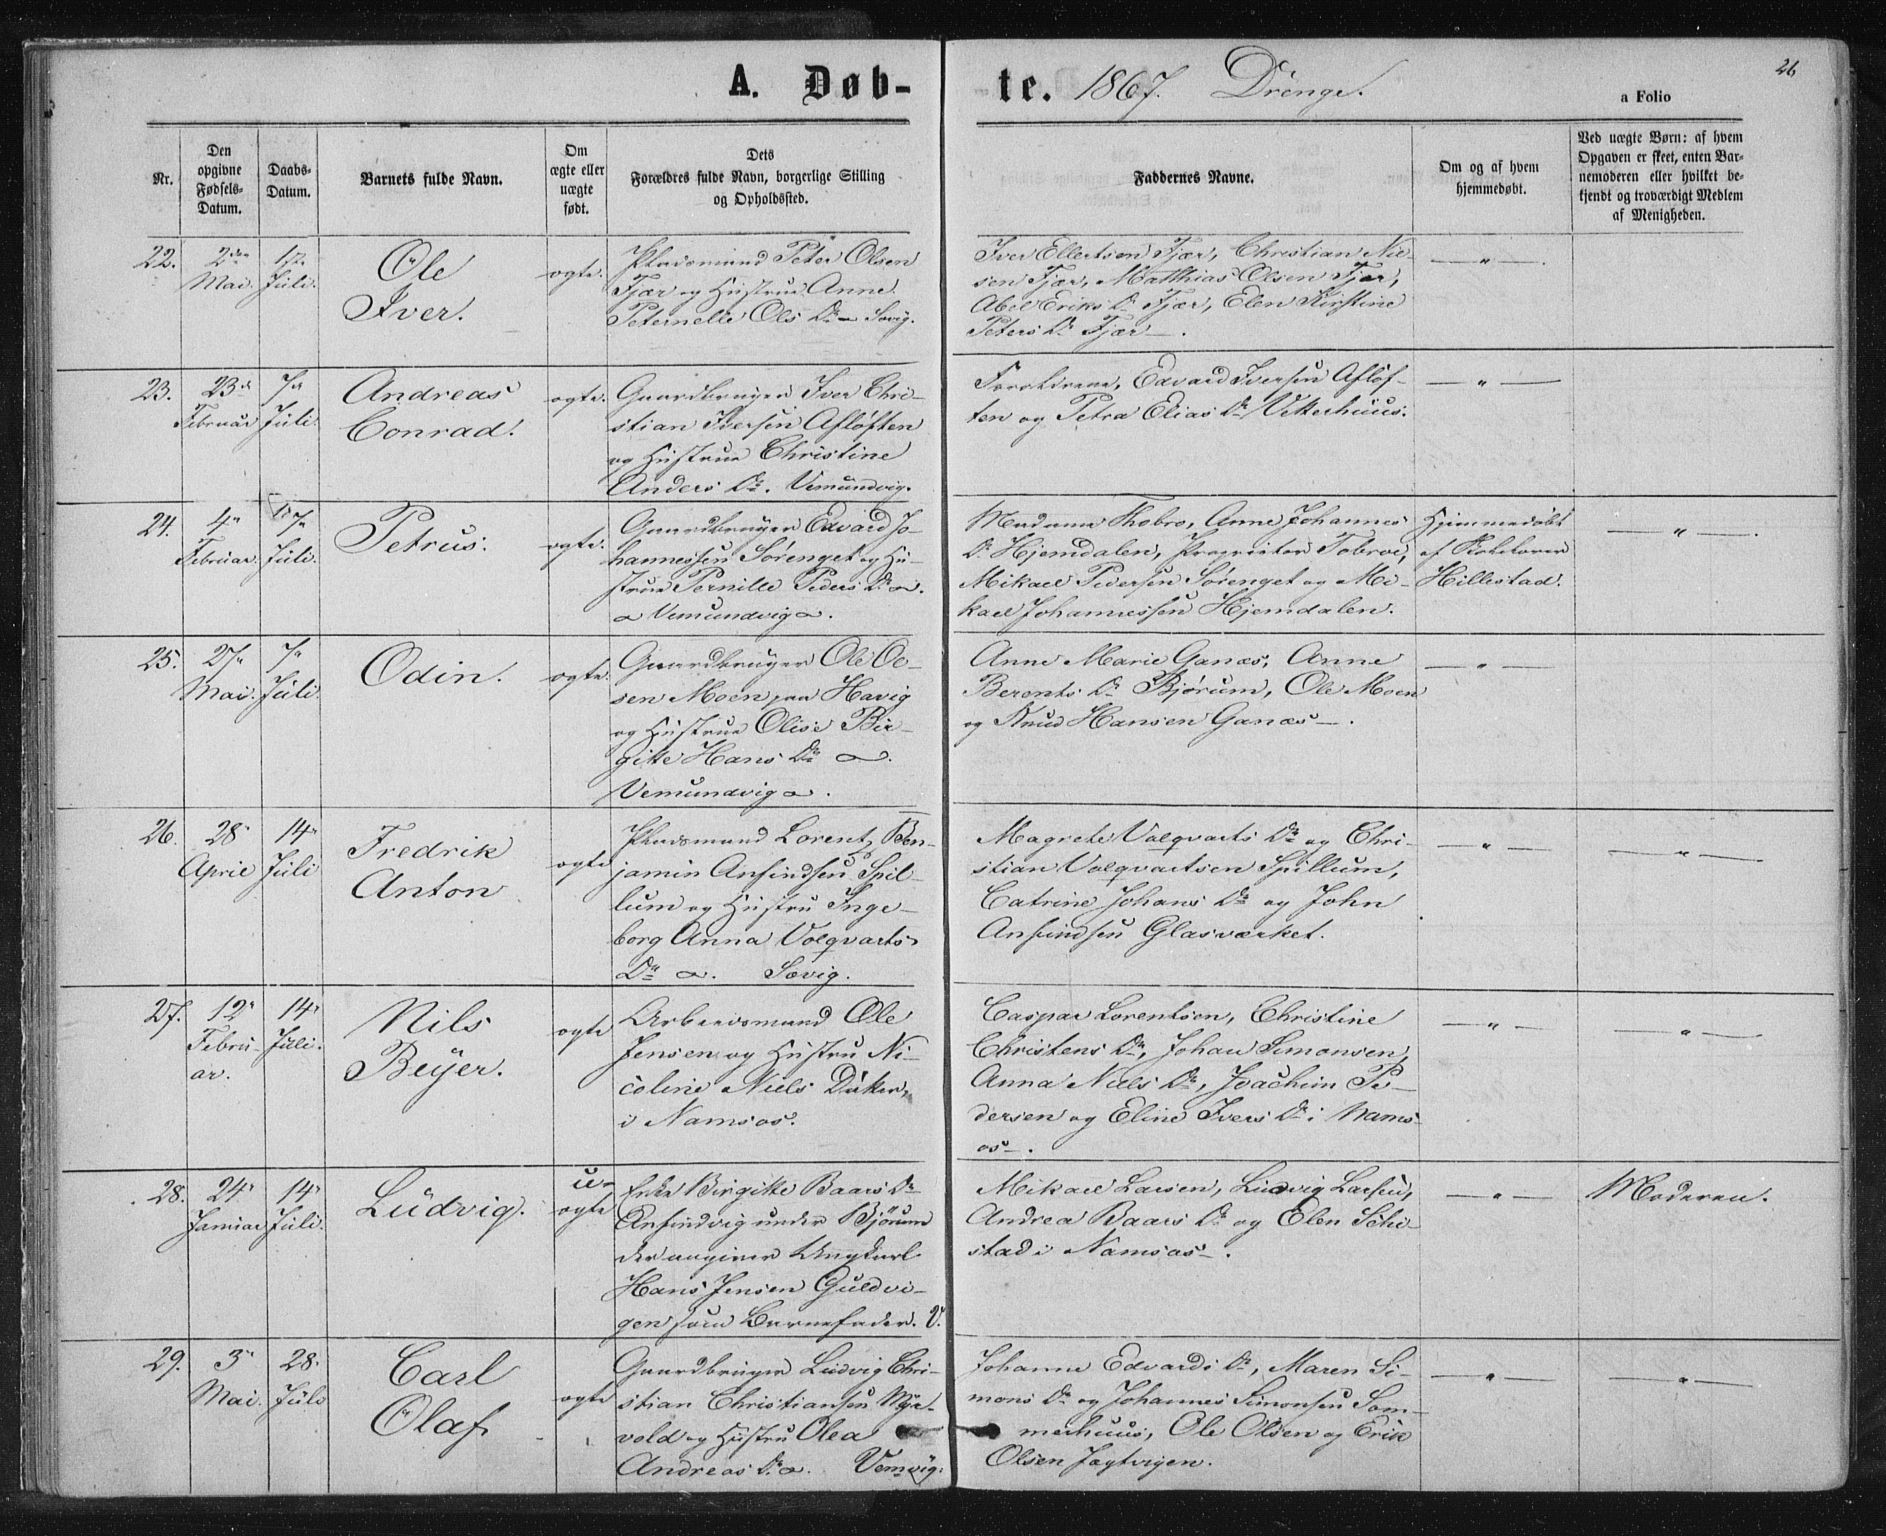 A. Døb-
te. 1867. Drenge.
a Folio
26
Nr.
Den opgivne Fødsels-Datum.
Daabs-Datum.
Barnets fulde Navn.
Om ægte eller uægte født.
Dets Forældres fulde Navn, borgerlige Stilling og Opholdssted.
Faddernes Navne.
Om og af hvem hjemmedøbt.
Ved uægte Børn: af hvem Opgaven er skeet, enten Barnemoderen eller hvilket bekjendt og troværdigt Medlem af Menigheden.
22.
2den Mai.
Juli.
Ole
Iver.
ægte.
Pladsmand Peter Olsen
Fjær og Hustrue Anne
Peternelle Ols Dr Sævig.
Iver Ellertsen Fjær, Christian Nil
sen Fjær, Matthias Olsen Fjær,
Abel Eriks Dr Fjær, Elen Kirstine
Peters Dr Fjær.
— " —
23.
23d Februar
7d Juli.
Andreas
Conrad.
ægte.
Gaardbruger Iver Chri-
stian Iversen Afløften
og Hustrue Christine
Anders Dr. Vemundvig.
Forældrene, Edvard Iversen Afløf-
ten og Petra Elias Dr Vetterhuus.
— " —
24.
4" Februar.
7" Juli.
Petrus.
ægte.
Gaardbruger Edvard Jo-
hannessen Sørenget og Hu-
strue Pernille Peders Dr
Vemundvig.
Madame Thobro, Anne Johannes
Dr Hjemdalen, Proprietær Tobroe,
Mikael Pedersen Sørenget og Mi-
kael Johannessen Hjemdalen.
Hjemmedøbt
af Kirketjener
Hillestad.
— " —
25.
27" Mai.
7" Juli.
Odin.
ægte.
Gaardbruger Ole Ol-
sen Moen paa Havig
og Hustrue Olise Bir-
gitte Hans Dr
Vemundvig.
Anne Marie Ganæs, Anne
Berents Dr Bjørum, Ole Moen
og Knud Hansen Ganæs.
— " —
26.
28" April
14" Juli
Fredrik
Anton
ægte
Pladsmand Lorentz Ben-
jamin Anfindsen Spil-
lum og Hustru Inge-
borg Anna Volqvarts
Dr Sævig.
Magrete Volqvarts Dr og Chri-
stian Volqvartsen Spillum,
Catrine Johans Dr og John
Anfindsen Glasværket.
— " —
— " —
27.
12" Febru-
ar.
14" Juli.
Nils
Beyer.
ægte
Arbeidsmand Ole
Jensen og Hustru Ni-
coline Niels Datter,
i Namsos.
Caspar Lorentsen, Christine
Christens Dr, Johan Simonsen,
Anna Niels Dr, Joachim Pe-
dersen og Eline Ivers Dr i Nams-
os.
— " —
— " —
28.
24" Januar
14" Juli.
Ludvig.
u-
ægte
Enke Birgitte Baars Dr
Anfindvig under Bjørum
der angiver Ungkarl
Hans Jensen Guldvi-
gen som Barnefader. V.
Mikael Larsen, Ludvig Larsen,
Andrea Baars Dr og Elen Schi-
stad i Namsos.
— " —
Moderen.
29.
3" Mai.
28" Juli
Carl
Olaf
ægte
Gaardbruger Ludvig Chri-
stian Christiansen Myr-
vold og Hustru Olea
Andreas Dr. Vemvig.
Johanne Edvards Dr, Maren Si-
mons Dr og Johannes Simonsen Som-
merhuus, Ole Olsen og Erik
Olsen Jagtvigen.
— " —
— " —